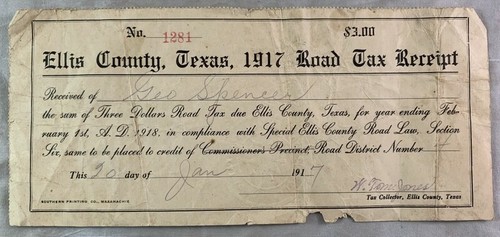 No. 1281 $3.00
Ellis County, Texas, 1917 Road Tax Receipt
Received of Geo Spencer
the sum of Three Dollars Road Tax due Ellis County, Texas, for year ending Feb-
ruary 1st, A. D. 1918. in compliance with Special Ellis County Road Law, Section
Six, same to be placed to credit of Commissioner's Precinct, Road District Number 1
This 20 day of Jan 1917
W. Tom Jones
SOUTHERN PRINTING CO., WAXAHACHIE Tax Collector, Ellis County, Texas